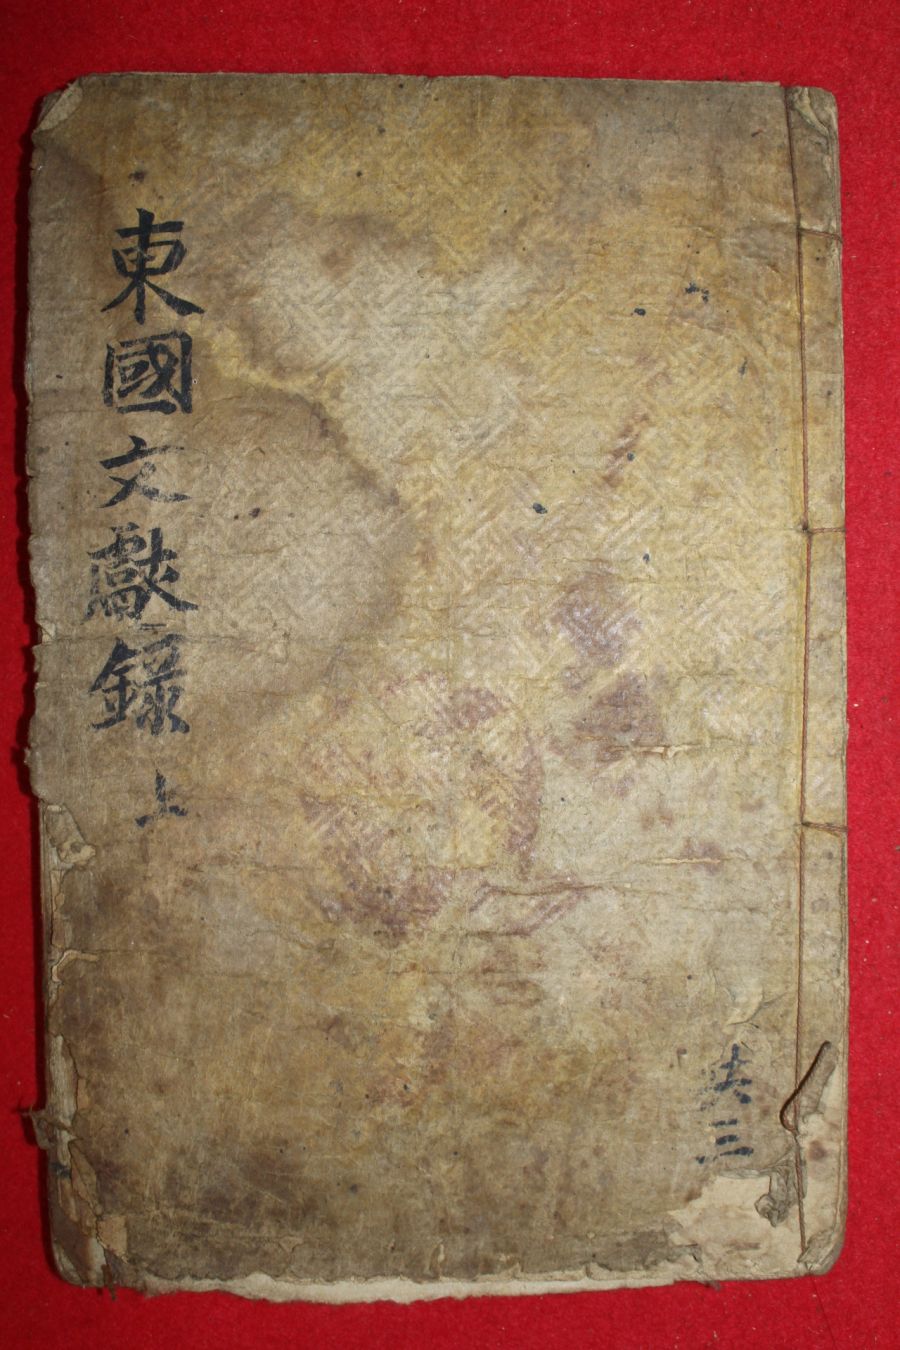 東國文獻錄 上
共三